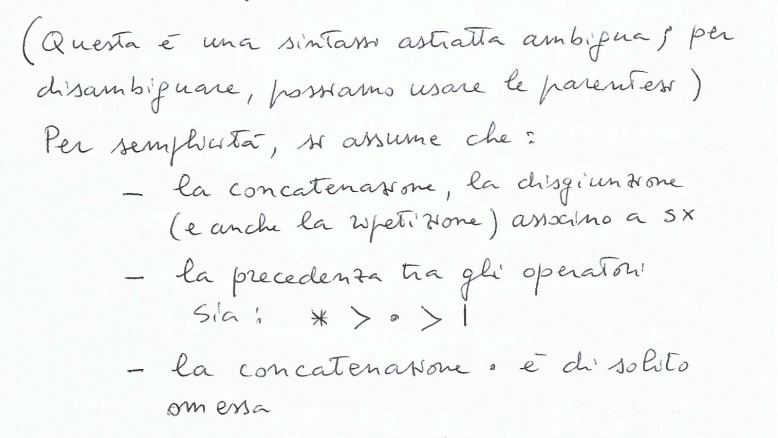 (Questa è una sintassi astratta ambigua; per
disambiguare, possiamo usare le parentesi)
Per semplicità, si assume che:
- la concatenazione, la disgiunzione
(e anche la ripetizione) associno a sx
- la precedenza tra gli operatori
sia: * > · > |
- la concatenazione · è di solito
omessa